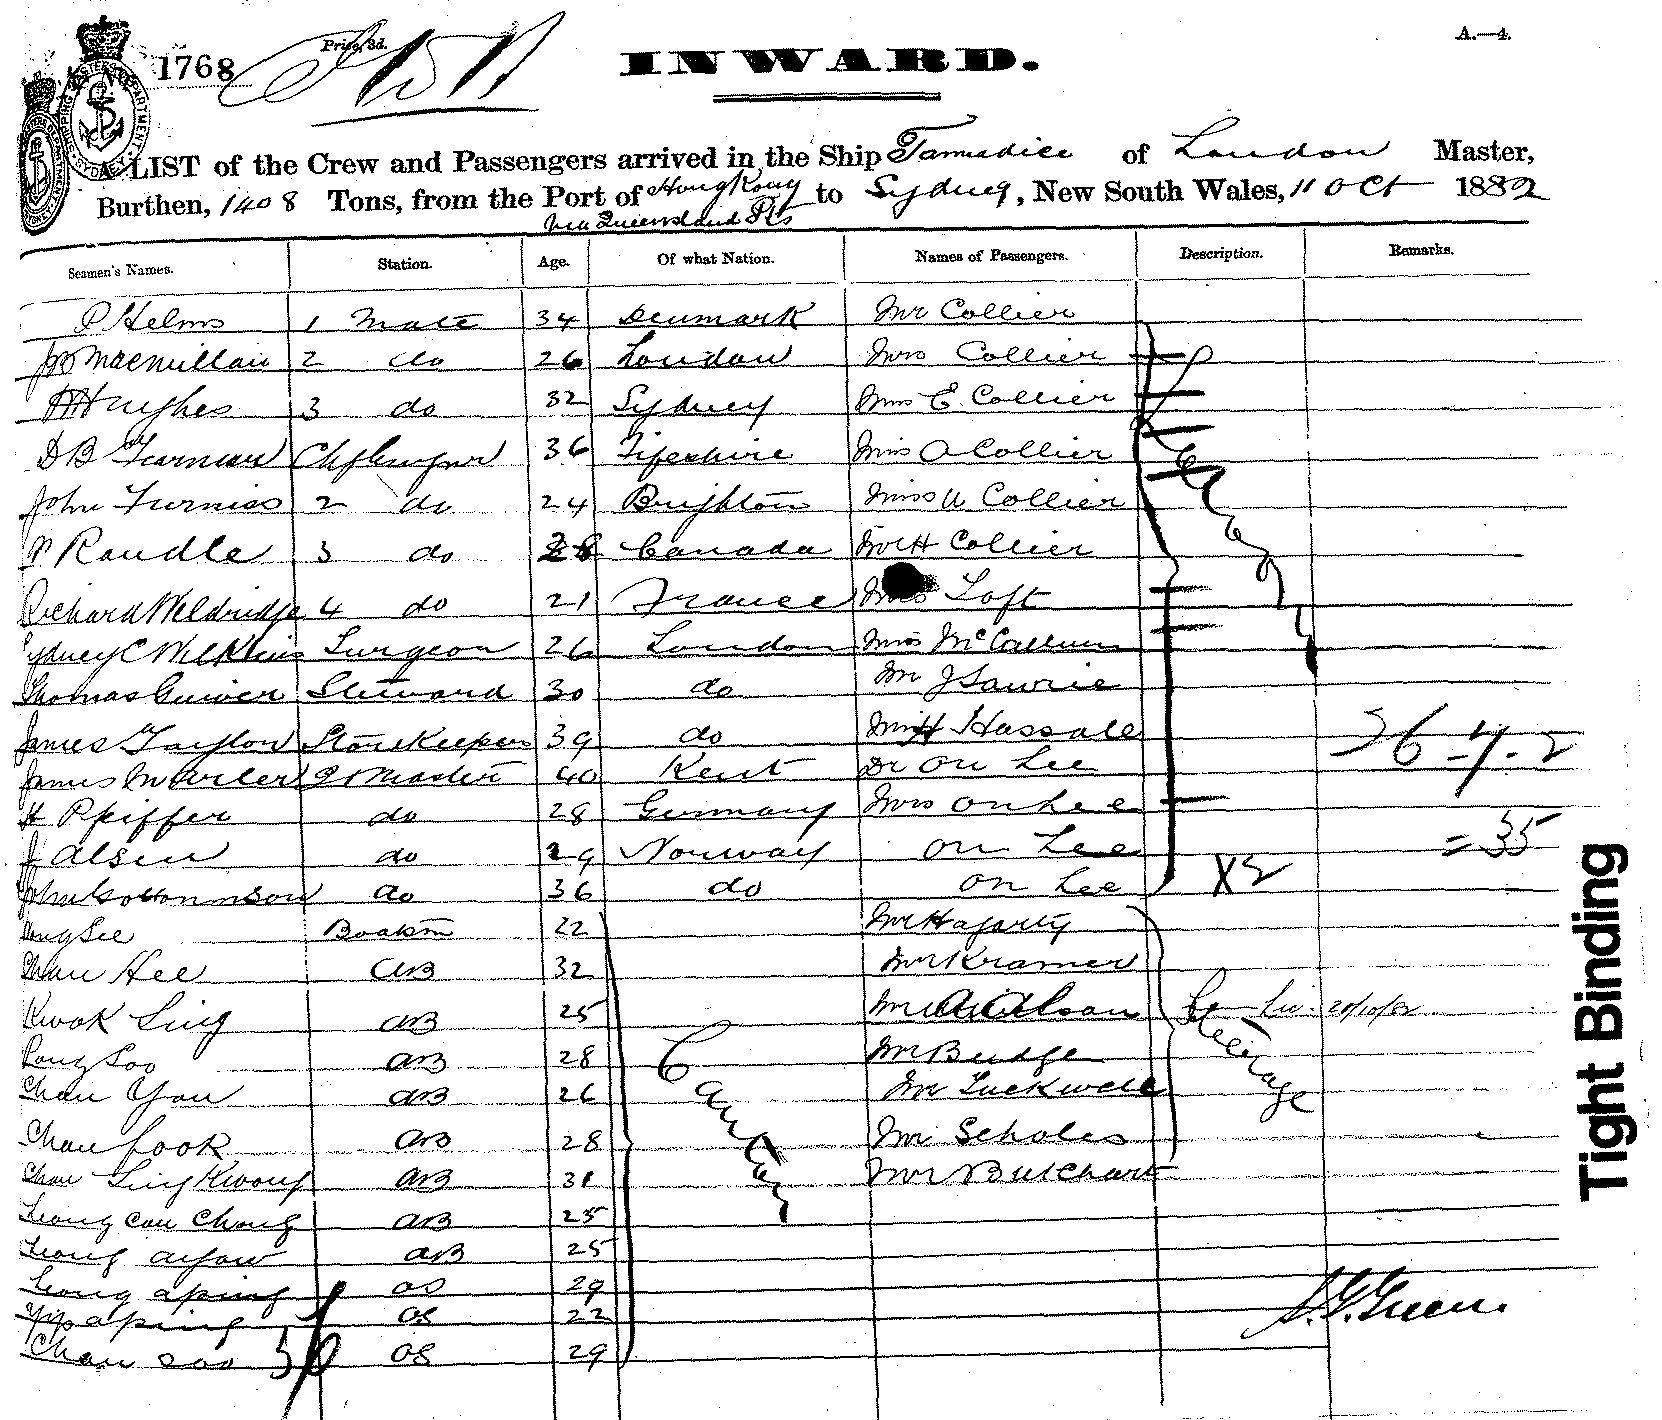 A.—4.
1768 Price, 3d.
INWARD.
A LIST of the Crew and Passengers arrived in the Ship Tannadice of London Master,
Burthen, 1408 Tons, from the Port of Hong Kong to Sydney, New South Wales, 11 Oct 1882
via Queensland Pts
Seamen's Names. Station. Age. Of what Nation. Names of Passengers. Description. Remarks.
P Helms 1 Mate 34 Denmark Mr Collier
Macmillan 2 do 26 London Mrs Collier
Hughes 3 do 32 Sydney Miss E. Collier
D B 36 Fifeshire Miss A Collier
John Furniss 2 do 24 Brighton Miss A Collier
Randle 3 do 28 Canada Mr H Collier
Richard Weldridge 4 do 21 France Mrs Toft
Sydney C Wilkins Surgeon 26 London Miss McCallum
Thomas Steward 30 do Mr J Lawrie
James Taylor Storekeeper 39 do Hassall 36-4-2
James 40 Kent Dr On Lee
H Pfiffer do 28 Germany Mrs On Lee
J Olsen do 29 Norway On Lee = 35
John do 36 do On Lee X2
See Boatsn 22 Mr Hagarty
Chan Hee AB 32 Mr Kramer
Kwok Sing AB 25 Mr 20/10/82
Soo AB 28 Mr Budge
Chan You AB 26 Canton Mr Tuckwell Steerage
Chan Cook AB 28 Mr Scholes
Chan Sing Kwong AB 31 Mr Butchart
Leong Cau Chong AB 25
Leong AB 25
Leong Aping OS 29
Yip Aping OS 22
Chan Soo OS 29
S. G. Green.
Tight Binding